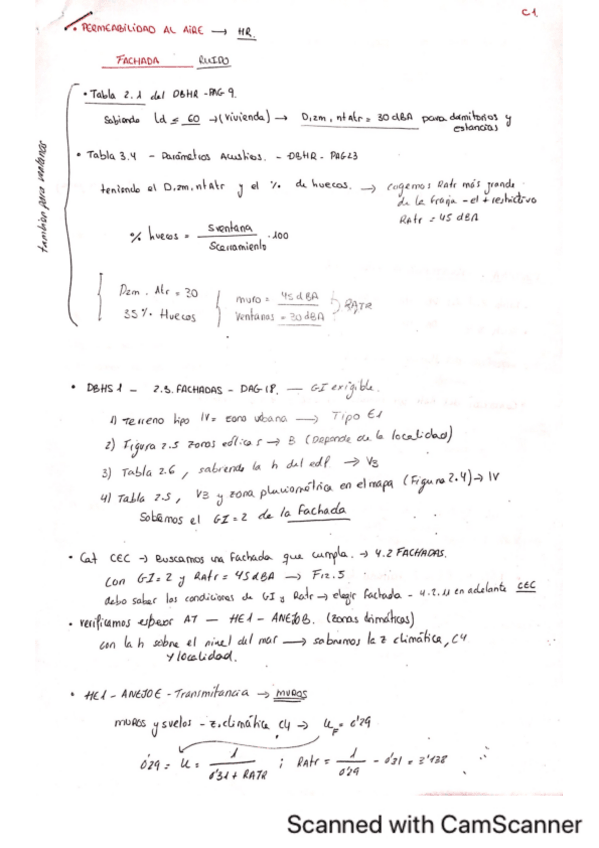 C1
1. PERMEABILIDAD AL AIRE → HR.
FACHADA RUIDO
también para ventanas
• Tabla 2.1 del DBHR - PAG 9.
Sabiendo Ld ≤ 60 → (vivienda) → D2m,ntAtr = 30 dBA para dormitorios y estancias
• Tabla 3.4 - Parámetros Acústicos. - DBHR - PAG 23
teniendo el D2m,ntAtr y el % de huecos. → cogemos RAtr más grande
de la franja - el + restrictivo
RAtr = 45 dBA
% huecos = Sventana / Scerramiento · 100
D2m. Atr = 30
35% Huecos
muro = 45 dBA
Ventanas = 30 dBA
RATR
• DBHS1 - 2.3. FACHADAS - PAG 18. — GI exigible.
1) Terreno tipo IV = zona urbana → Tipo E1
2) Figura 2.5 zonas eólicas → B (Depende de la localidad)
3) Tabla 2.6, sabiendo la h del edf → V3
4) Tabla 2.5, V3 y zona pluviométrica en el mapa (Figura 2.4) → IV
Sabemos el GI=2 de la Fachada
• Cat CEC → Buscamos una fachada que cumpla. → 4.2 FACHADAS.
Con GI=2 y RAtr = 45 dBA → F12.5
debo saber las condiciones de GI y RAtr → elegir fachada - 4.2.11 en adelante CEC
• Verificamos espesor AT — HE1 - ANEJO B. (zonas climáticas)
con la h sobre el nivel del mar → sabremos la z climática, C4
y localidad.
• HE1 - ANEJO E - Transmitancia → MUROS
MUROS y suelos - z. climática C4 → U = 0'29
0'29 = U = 1 / 0'31 + RATR ; RAtr = 1 / 0'29 - 0'31 = 3'138
Scanned with CamScanner